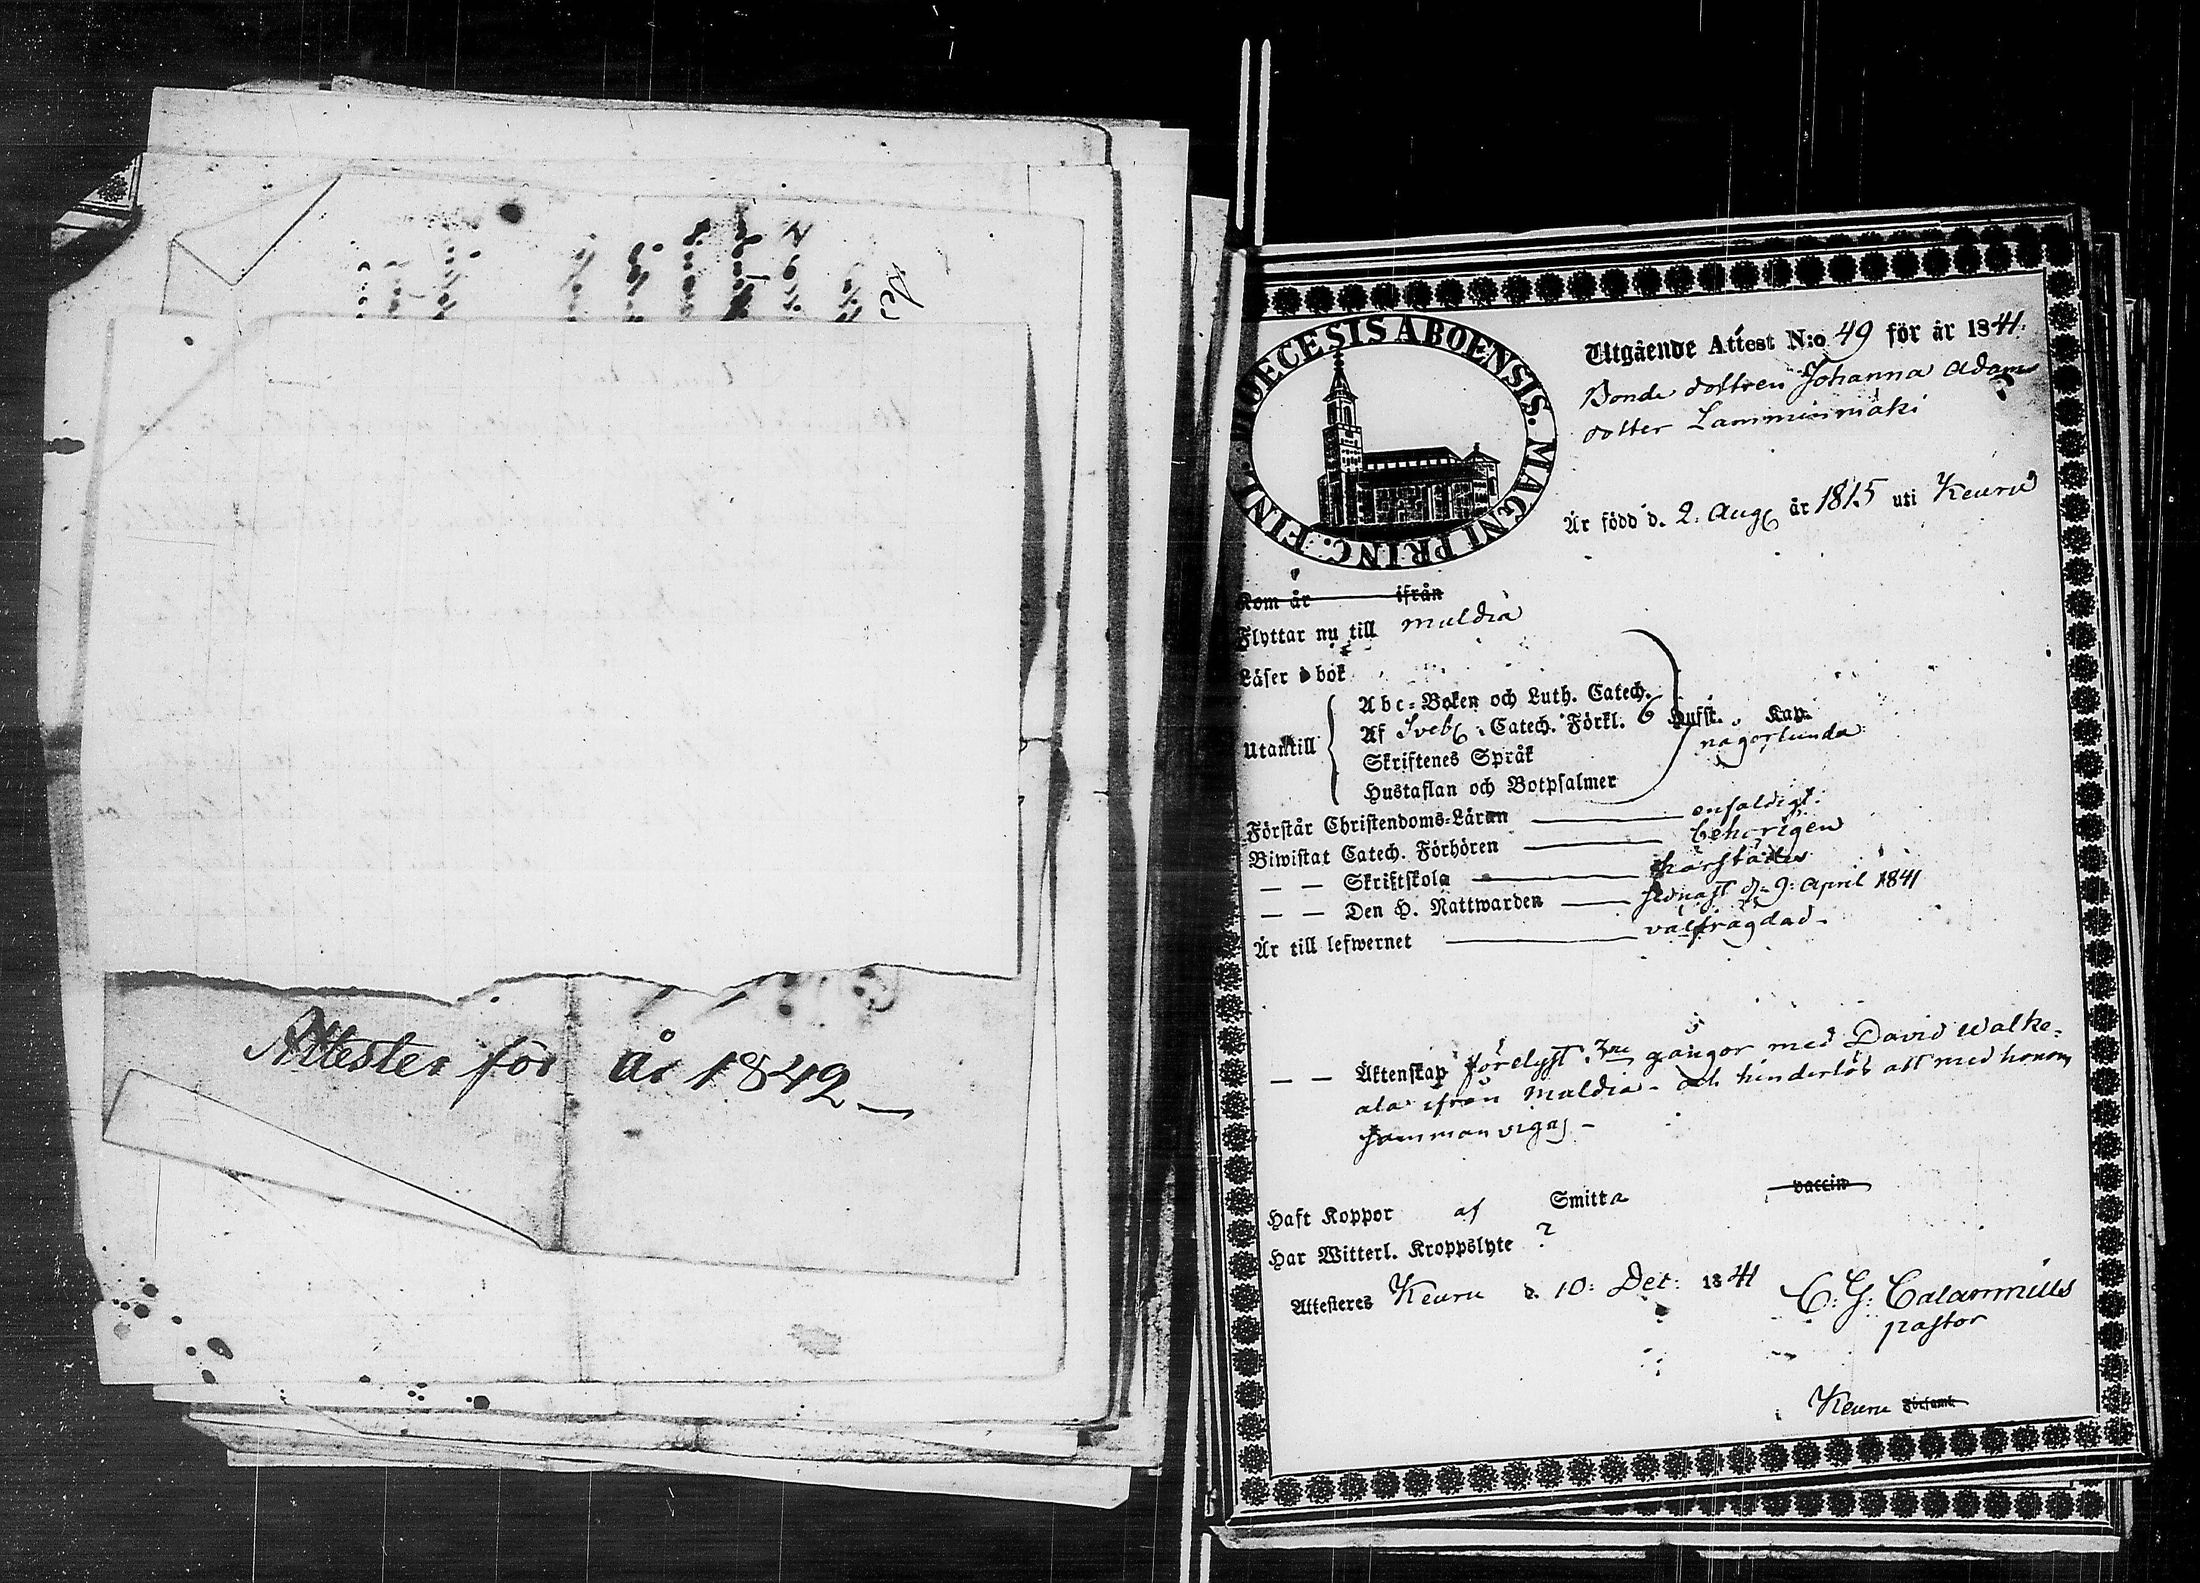 Attester för År 1842
DIOECESIS ABOENSIS. MAGNI PRINC. FINL.
Utgående Attest N:o 49 för år 1841.
Bonde dottren Johanna Adams
dotter Lamminmäki
Är född d. 2. Aug. år 1815 uti Keuru
Kom år ifrån
Flyttar nu till Muldia
Läser i bok
Utantill
Abc-Boken och Luth. Catech.
Af Sveb. Catech. Förkl. 6 Hufst. Kap.
någorlunda
Skriftenes Språk
Hustaflan och Botpsalmer
Förstår Christendoms-Läran enfaldigt.
Biwistat Catech. Förhören behörigen
— — Skriftskola härstädes
— — Den H. Nattwarden sednast d. 9. April 1841
Är till lefwernet välfrägdad
— — Äktenskap förelyst 3ne gångor med David Walke-
ala ifrån Muldia - och hinderlös att med honom
sammanvigas -
Haft Koppor af Smitta vaccin
Har Witterl. Kroppslyte ?
Attesteres Keuru d. 10. Dec. 1841
C. G. Calamnius
pastor
Keuru Församl.